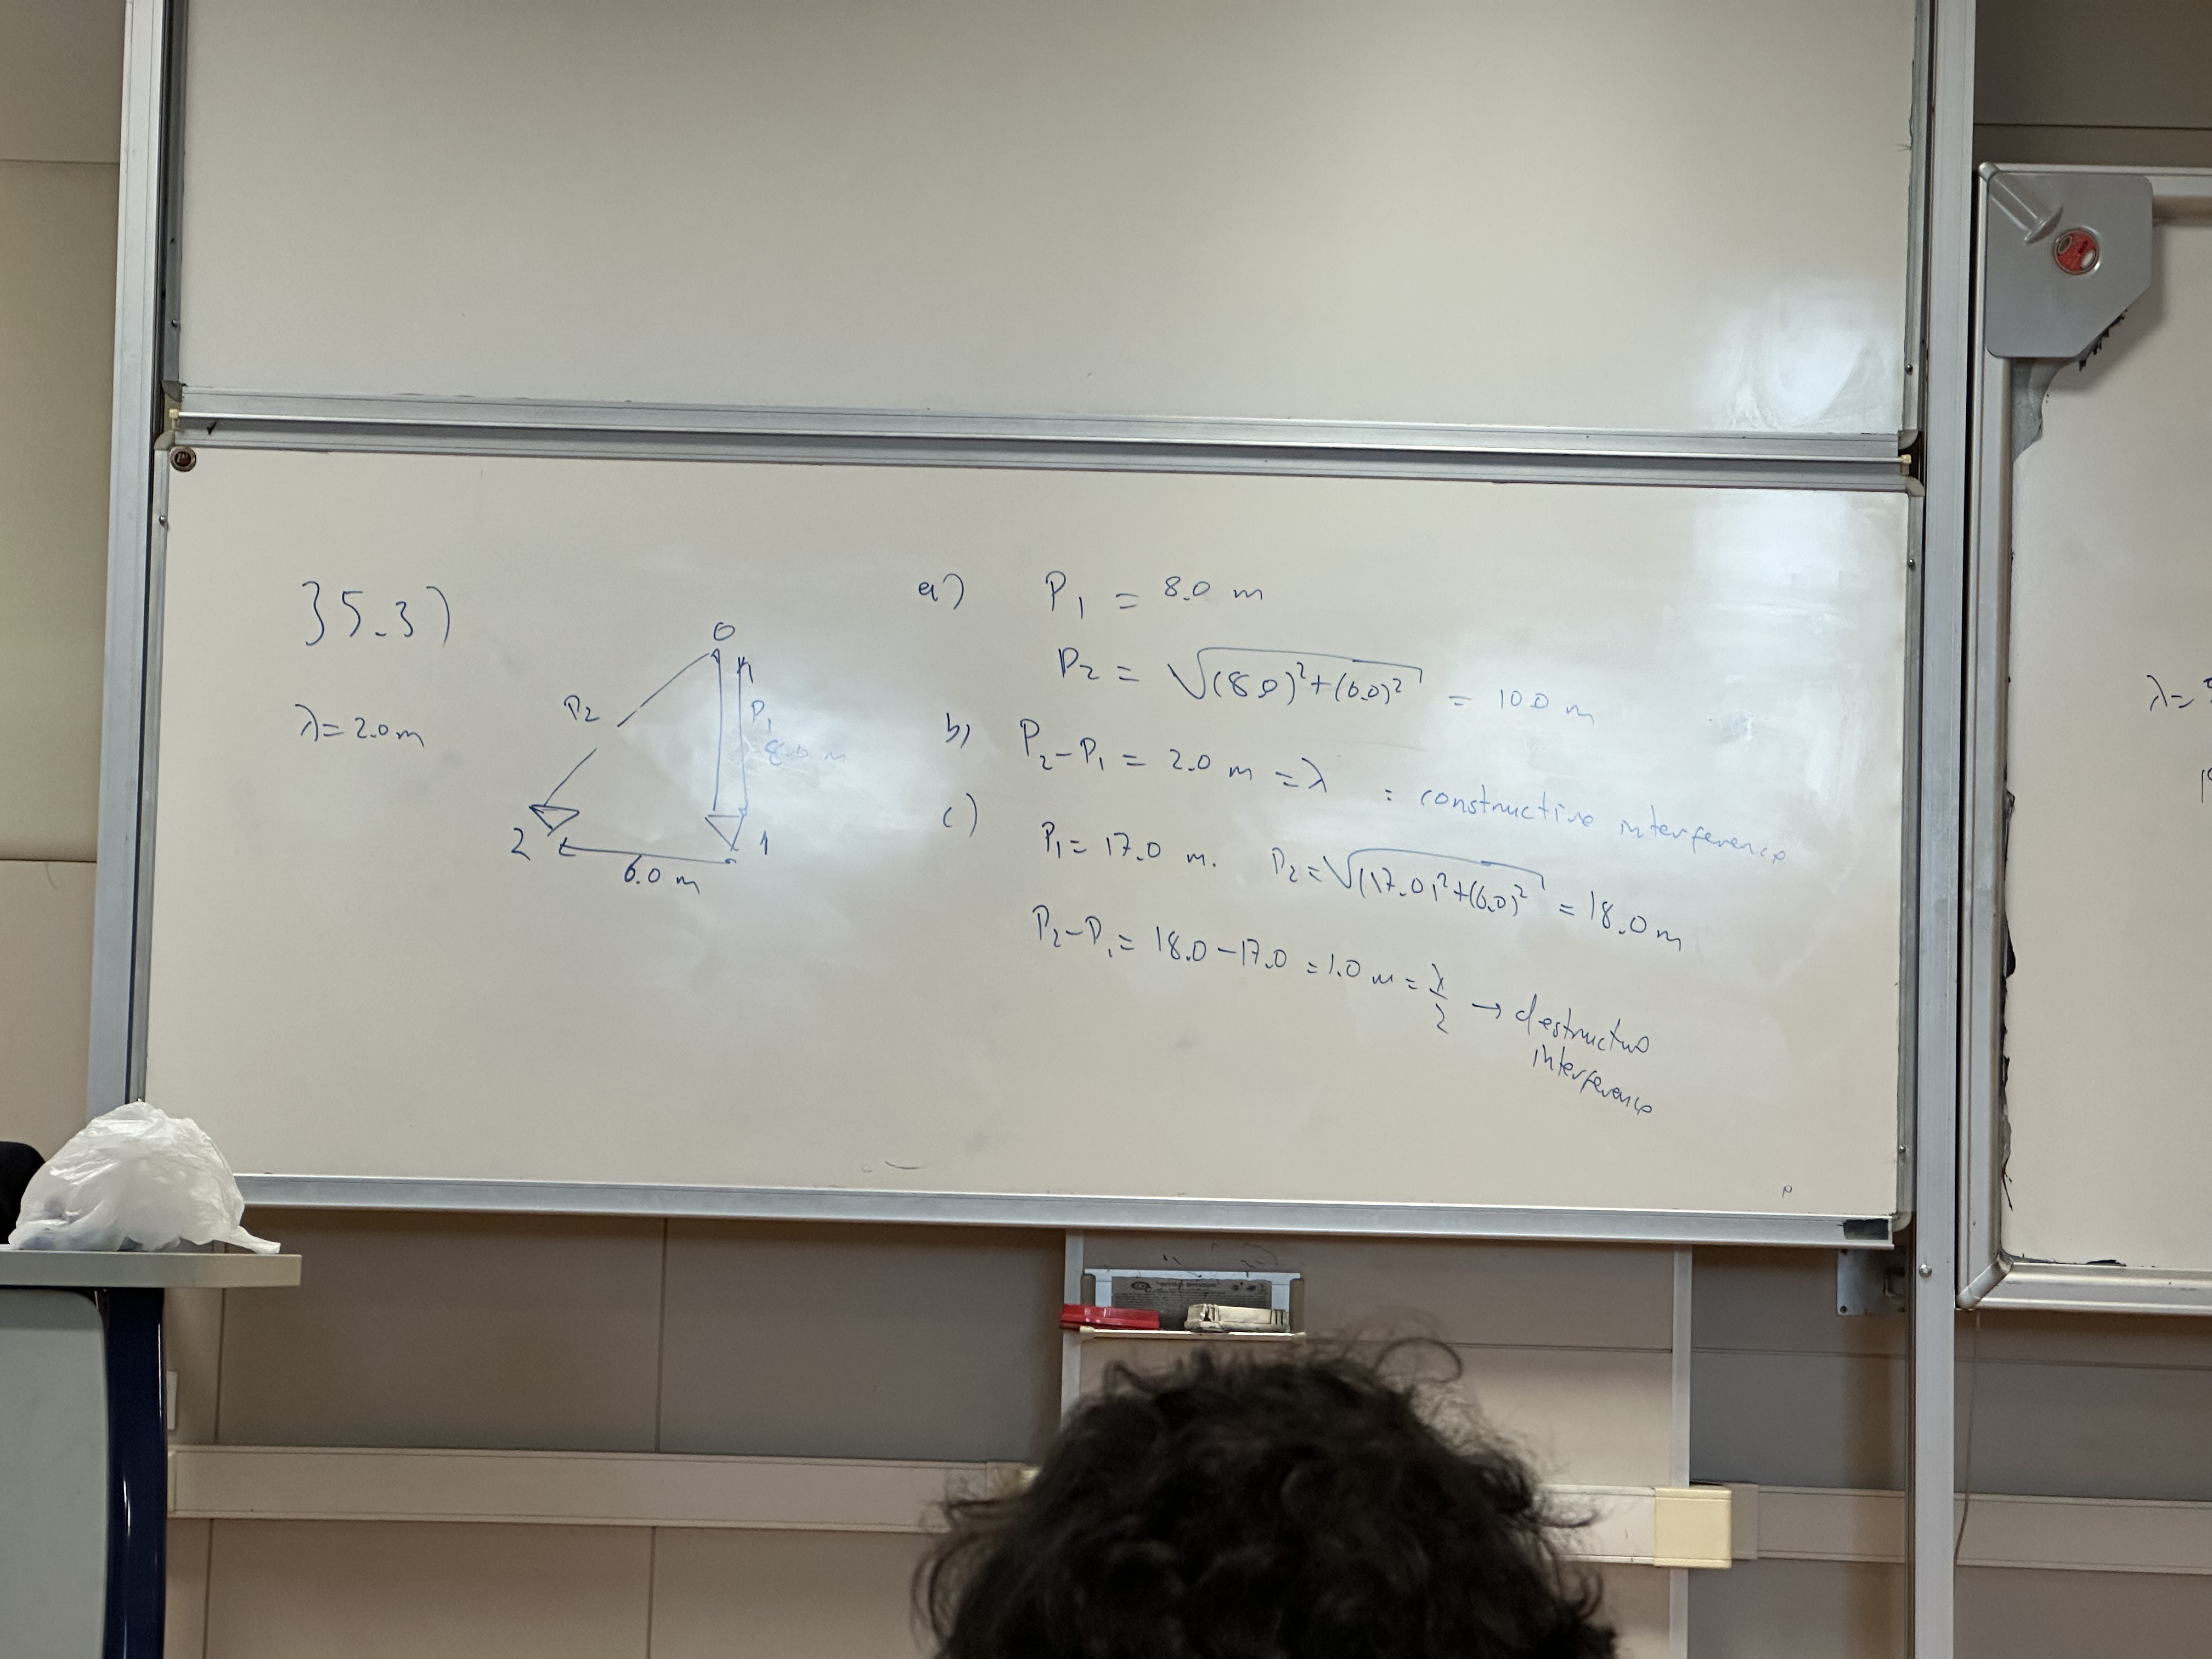 35.3)
λ = 2.0 m
O
P₂
P₁
8.0 m
2
1
6.0 m
a) P₁ = 8.0 m
P₂ = √((8.0)² + (6.0)²) = 10.0 m
b) P₂ - P₁ = 2.0 m = λ : constructive interference
c) P₁ = 17.0 m. P₂ = √((17.0)² + (6.0)²) = 18.0 m
P₂ - P₁ = 18.0 - 17.0 = 1.0 m = λ/2 → destructive
interference
λ =